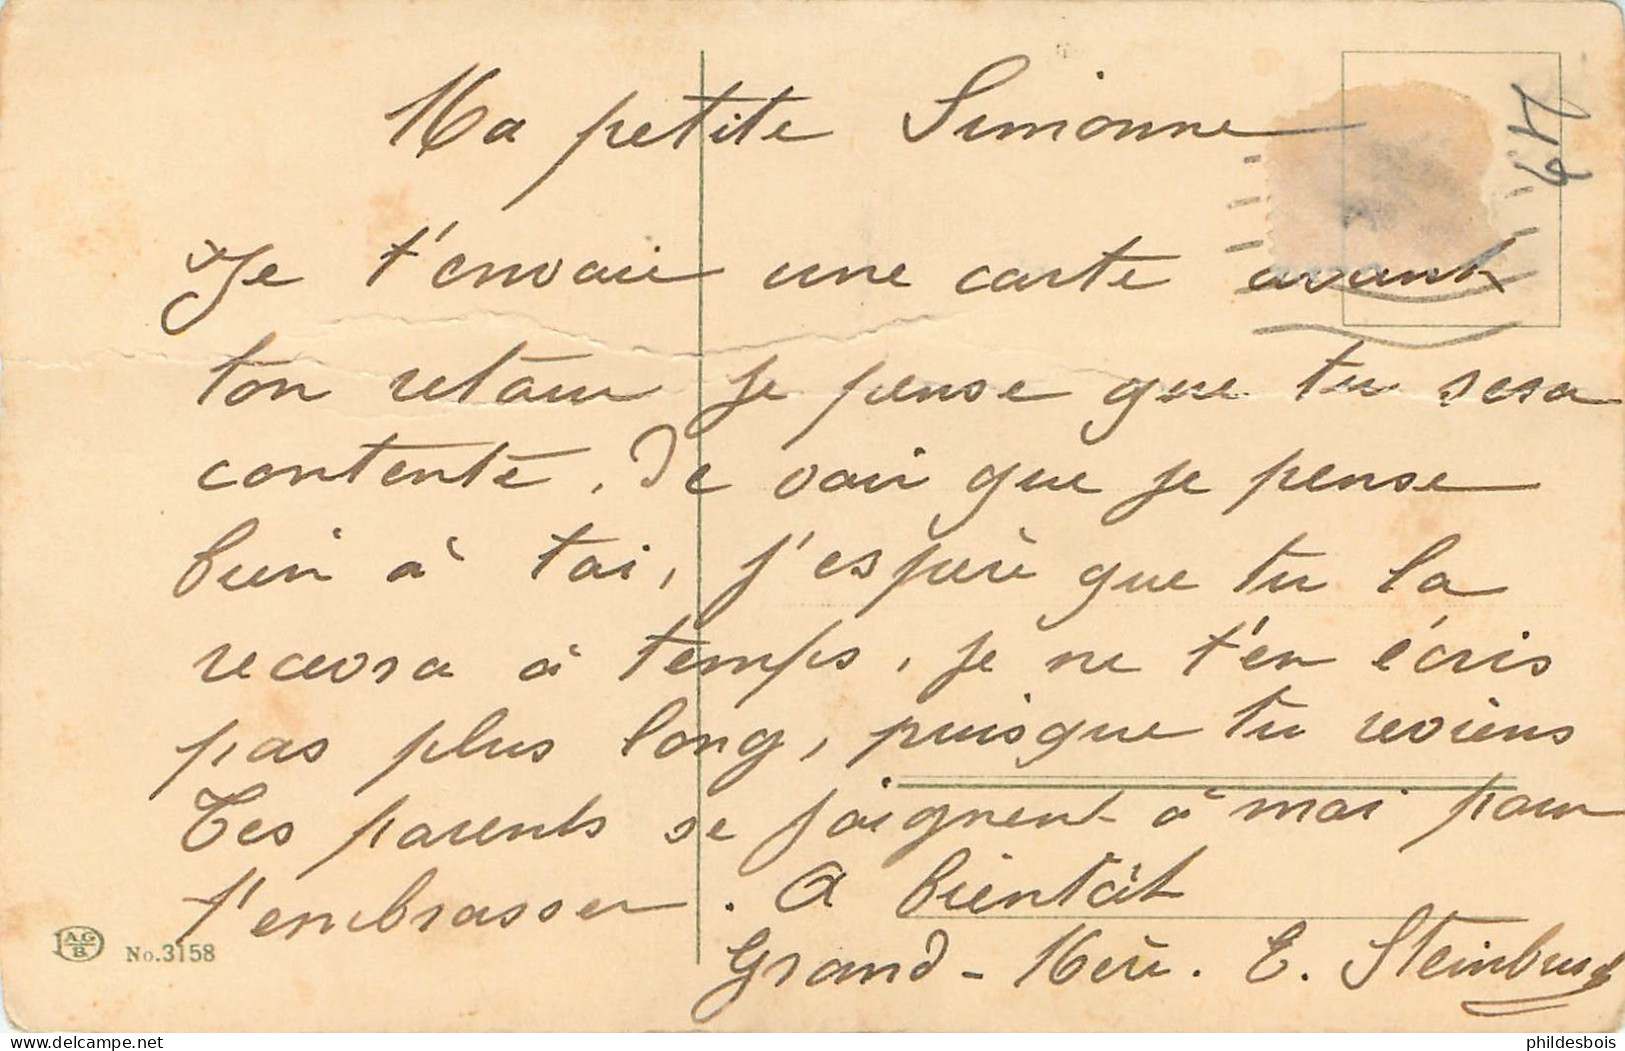 Ma petite Simonne
Je t'envoie une carte avant
ton retour je pense que tu sera
contente. Je voir que je pense
bien à toi, j'espère que tu la
recevra à temps, je ne t'en écris
pas plus long, puisque tu reviens
Tes parents se joignent à moi pour
t'embrasser. A bientôt
Grand-Mère. E.
A.G.
B.
No. 3158
phildesbois